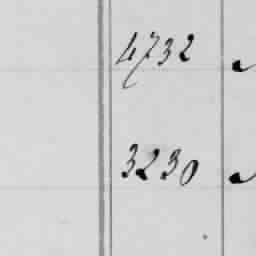 4732
3230